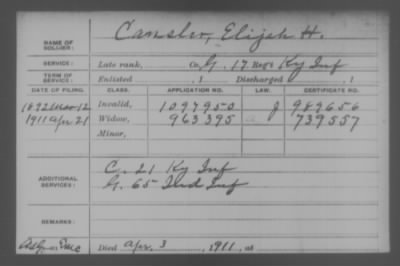 NAME OF SOLDIER: Camsler, Elijah H.
SERVICE: Late rank, Co. G. 17 Reg't Ky Inf
TERM OF SERVICE: Enlisted , 1 Discharged , 1
DATE OF FILING. CLASS. APPLICATION NO. LAW. CERTIFICATE NO.
1892 Mar 12 Invalid, 1097950 J 989656
1911 Apr 21 Widow, 963395 a 739557
Minor,
ADDITIONAL SERVICES: C. 21 Ky Inf
G. 65 Ind Inf
REMARKS:
Died Apr. 3, 1911, at